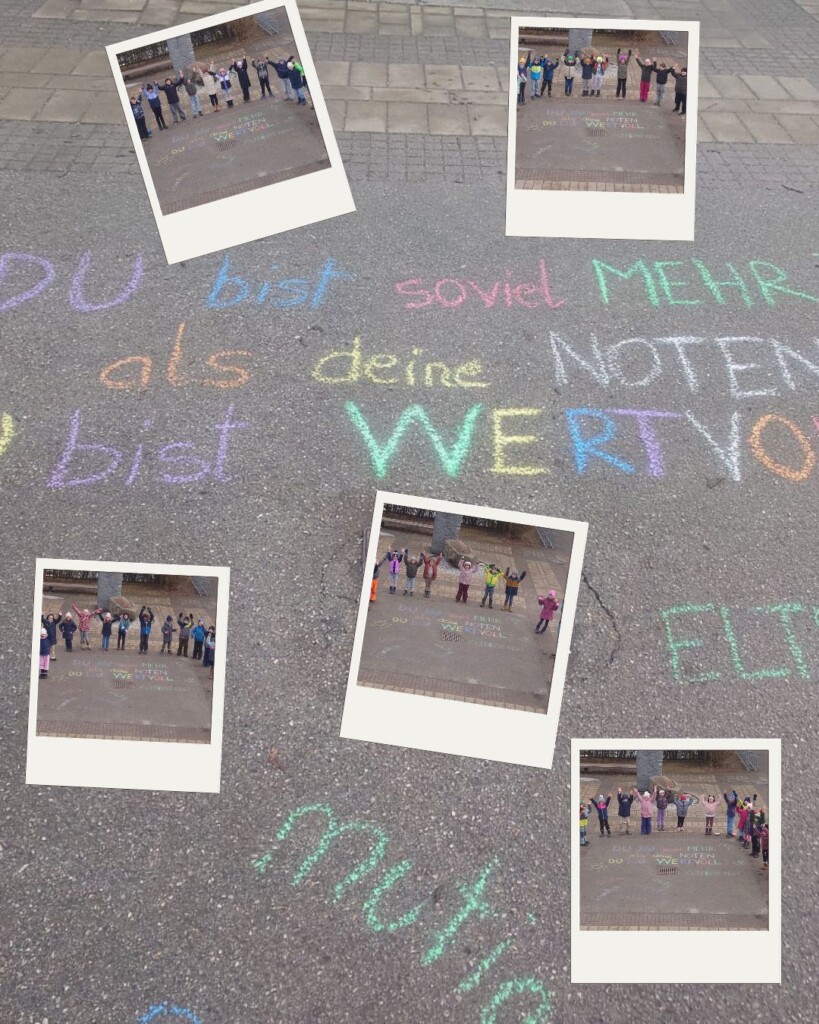 DU bist soviel MEHR
als deine NOTEN
bist WERTVO
ELT
mutig